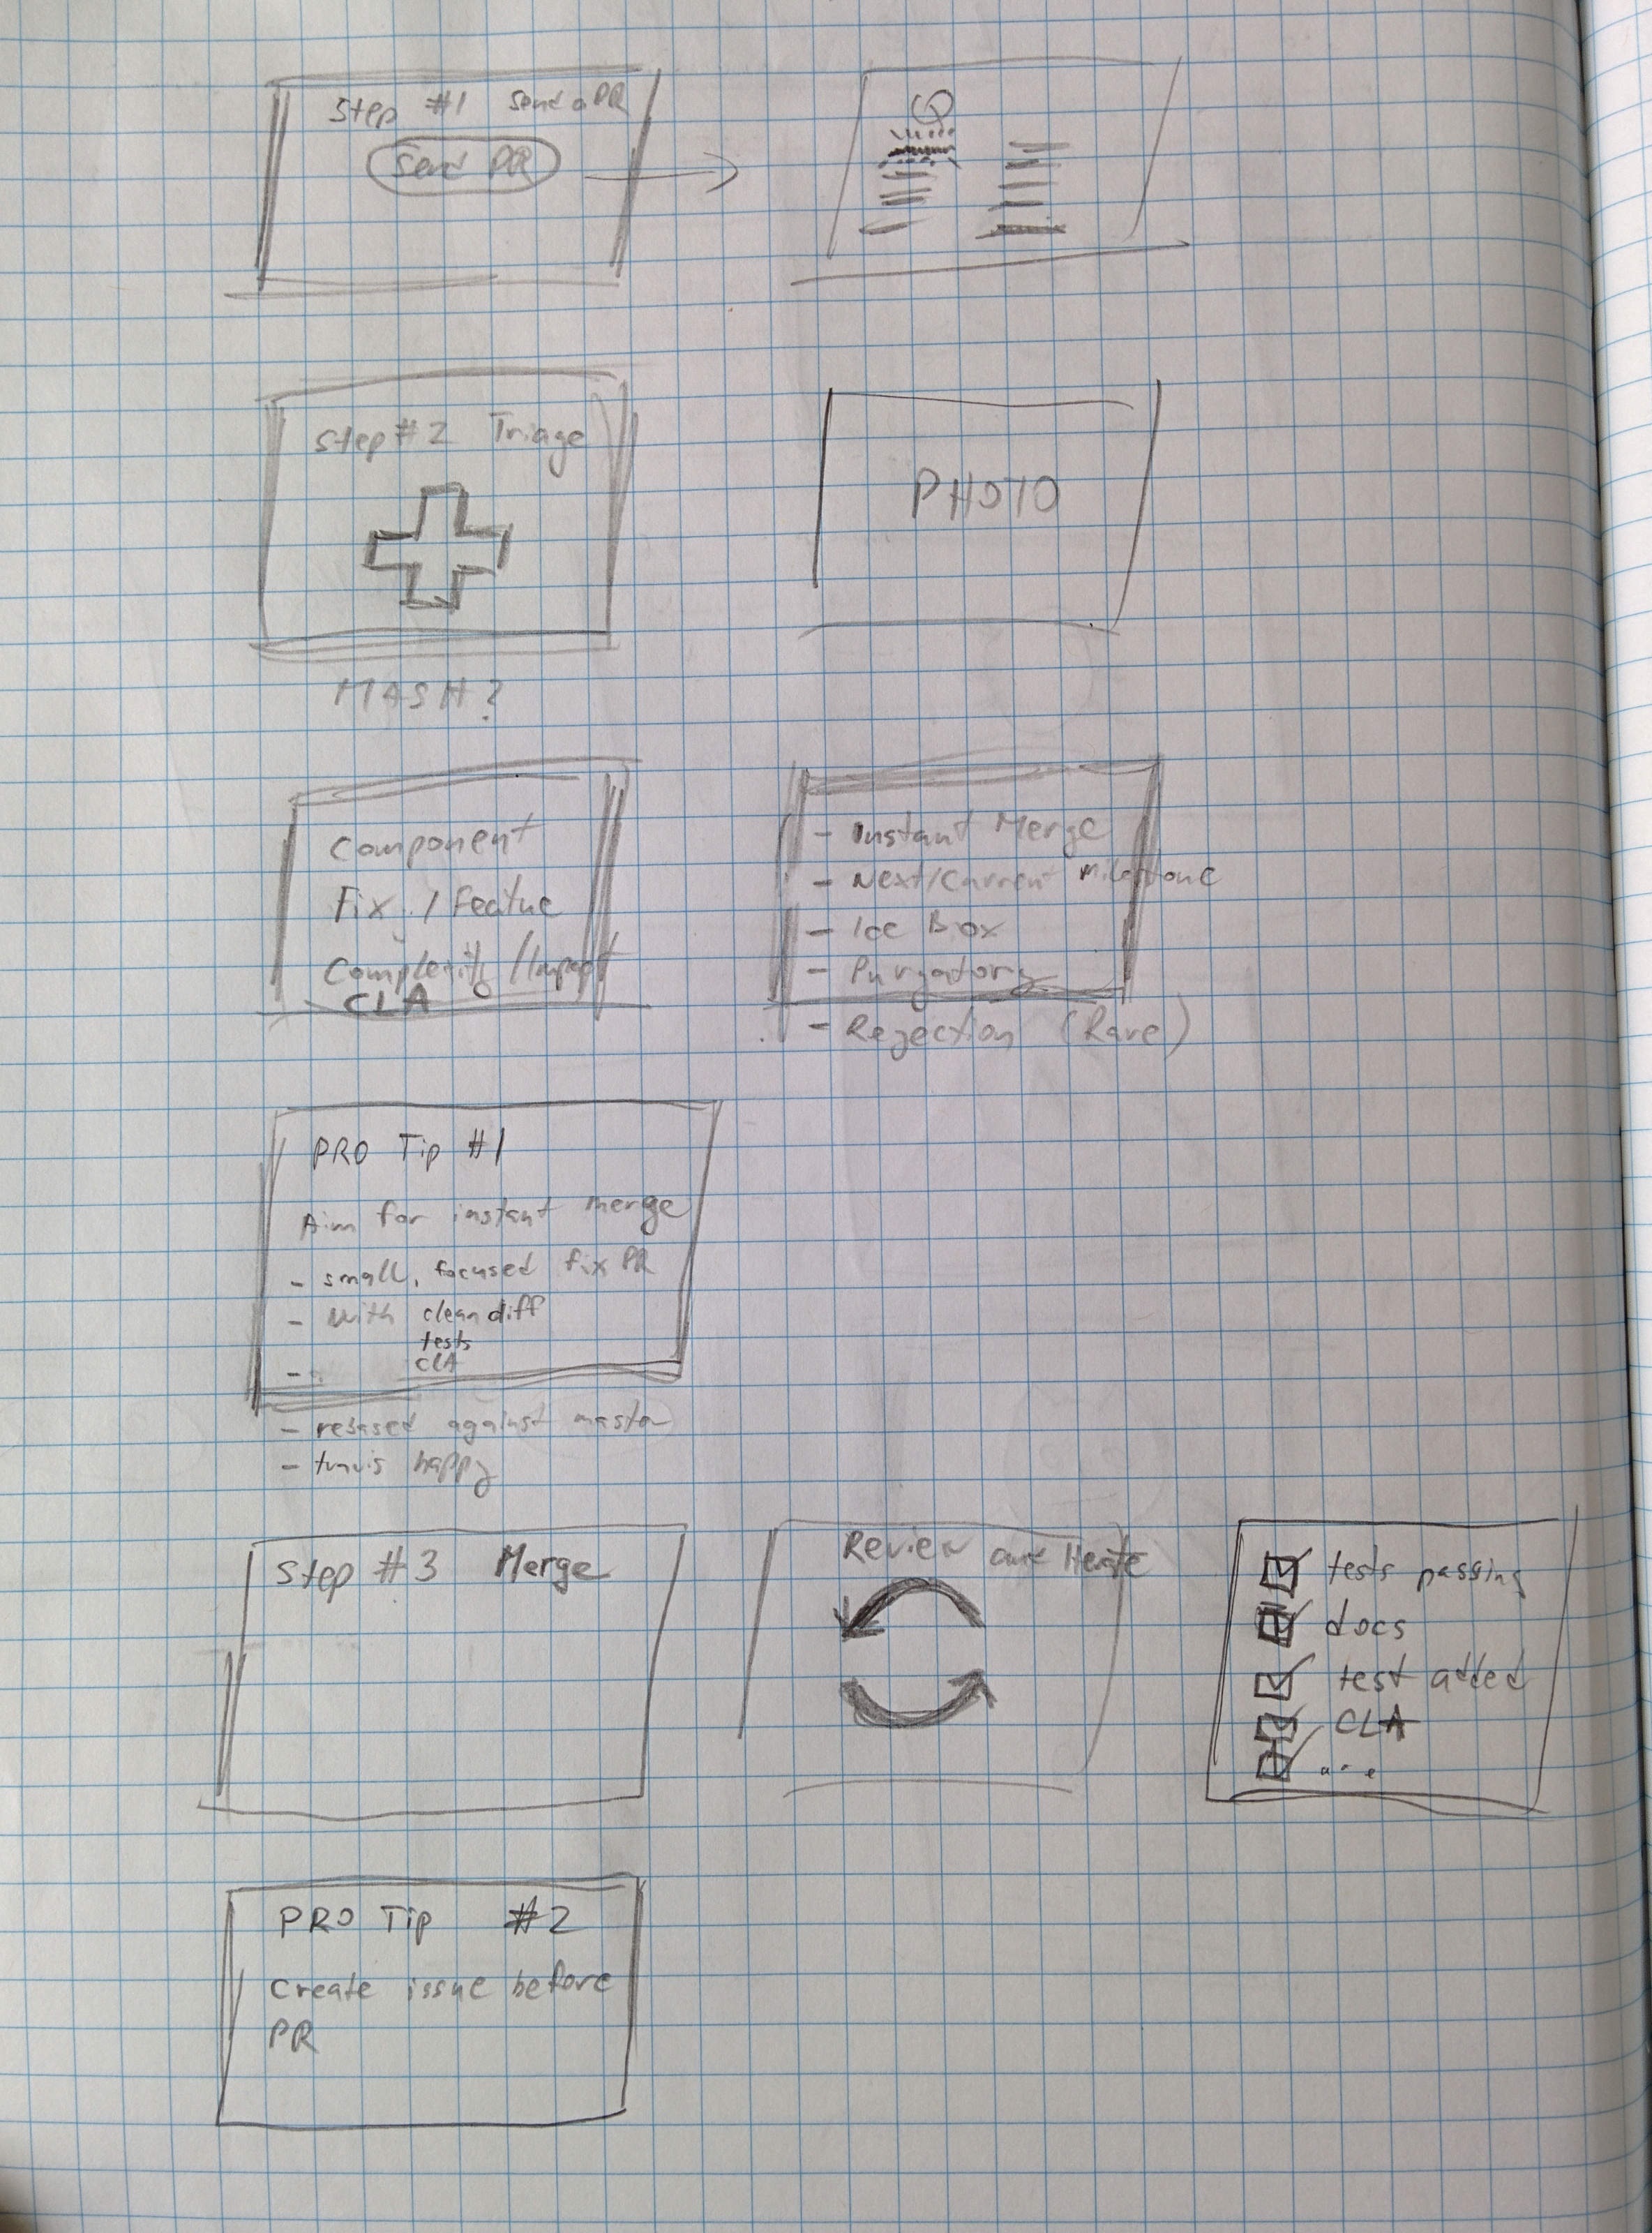 Step #1 Send a PR
Send PR
Step #2 Triage
MASH?
PHOTO
Component
Fix / Feature
Complexity / Impact
CLA
- Instant Merge
- Next/Current Milestone
- Ice Box
- Purgatory
- Rejection (Rare)
PRO Tip #1
Aim for instant merge
- small, focused fix PR
- With clean diff
tests
CLA
-
- rebased against master
- travis happy
Step #3 Merge
Review and Iterate
tests passing
docs
test added
CLA
...
PRO Tip #2
Create issue before
PR